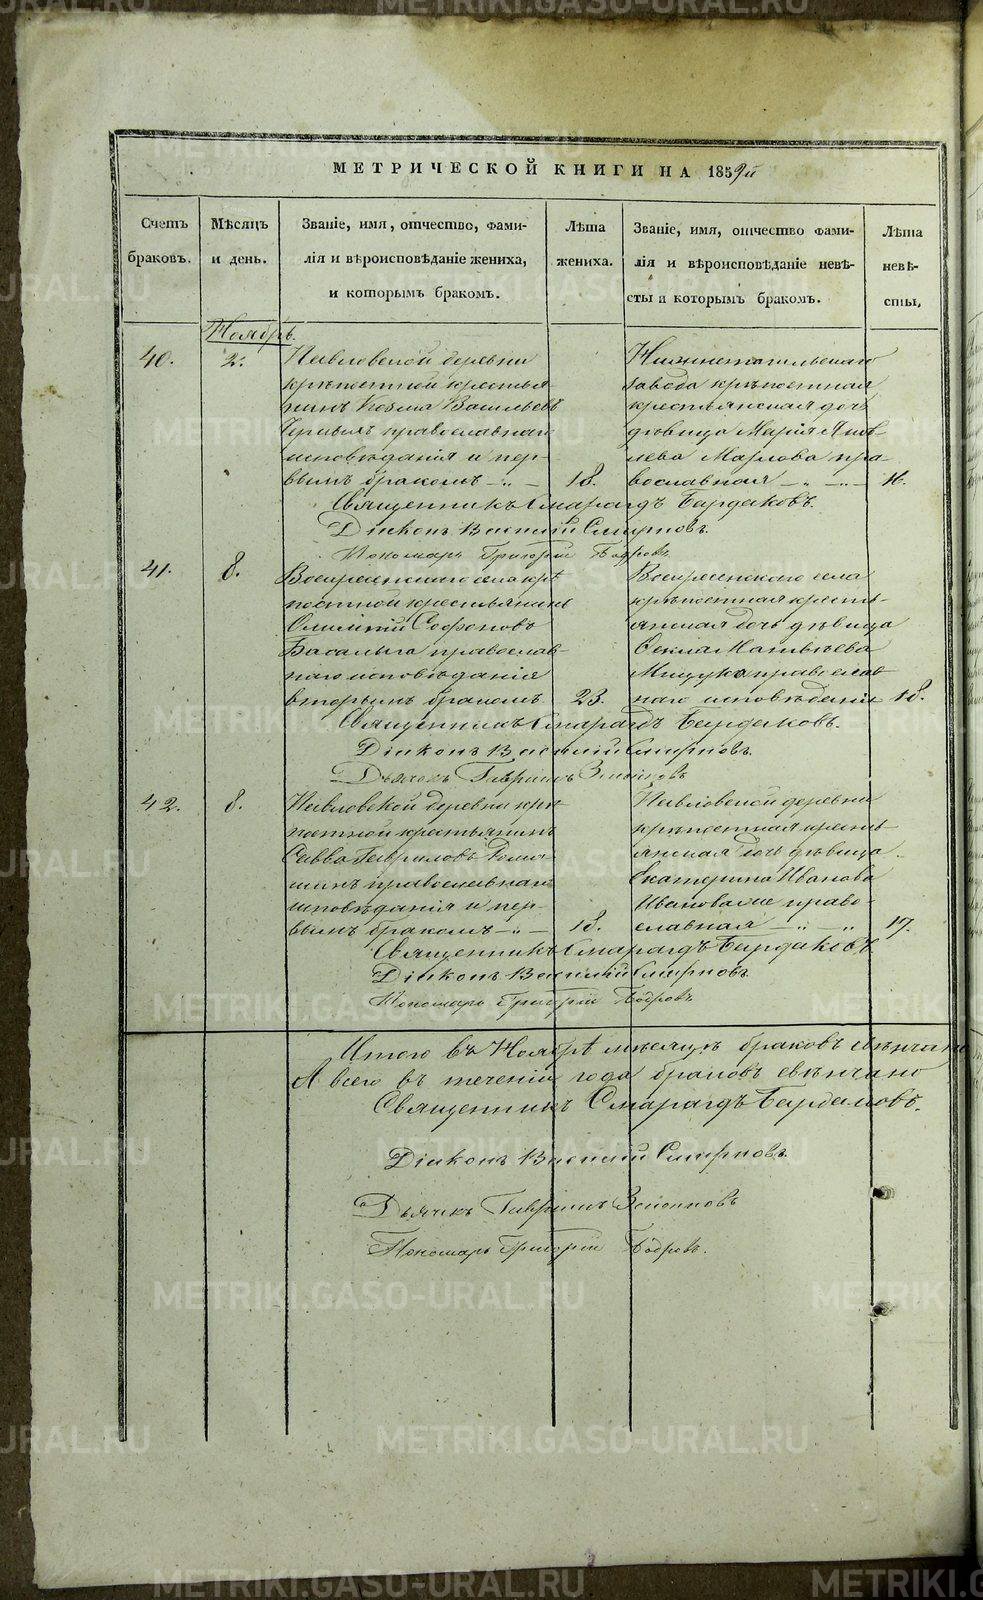 МЕТРИЧЕСКОЙ КНИГИ НА 1859й
Счетъ браковъ.
Мѣсяцъ и день.
Званіе, имя, отчество, фами-
лія и вѣроисповѣданіе жениха,
и которымъ бракомъ.
Лѣта жениха.
Званіе, имя, отчество фами-
лія и вѣроисповѣданіе невѣ-
сты и которымъ бракомъ.
Лѣта невѣ-
сты,
Ноябрь.
40. 2.
Павловской деревни
крѣпостной крестья
нинъ Козма Васильевъ
православнаго
исповѣданія и пер-
вымъ бракомъ 18.
Нижнетагильскаго
завода крѣпостная
крестьянская дочь
дѣвица Марія Яков-
лева пра-
вославная 16.
Священникъ Смарагдъ Бардаковъ.
Діаконъ Василій Смирновъ.
Пономарь Григорій
41. 8.
Воскресенскаго села крѣ
постной крестьянинъ
Софоновъ
православ-
наго исповѣданія
вторымъ бракомъ 23.
Воскресенскаго села
крѣпостная кресть-
янская дочь дѣвица
Ѳекла Матвѣева
православ
наго исповѣданія 18.
Священникъ Смарагдъ Бардаковъ.
Діаконъ Василій Смирновъ.
Дьячекъ Гавріилъ
42. 8.
Павловской деревни крѣ-
постной крестьянинъ
Савва Гавриловъ
православнаго
исповѣданія и пер-
вымъ бракомъ 18.
Павловской деревни
крѣпостная кресть-
янская дочь дѣвица
Екатерина Иванова
право-
славная 17.
Священникъ Смарагдъ Бардаковъ
Діаконъ Василій Смирновъ
Пономарь Григорій
Итого въ Ноябрѣ мѣсяцѣ браковъ свѣнчано
А всего въ теченіи года браковъ свѣнчано
Священникъ Смарагдъ Бардаковъ.
Діаконъ Василій Смирновъ
Дьячекъ Гавріилъ
Пономарь Григорій
METRIKI.GASO-URAL.RU